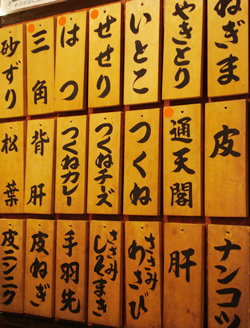 ねぎま
やきとり
いとこ
せせり
はつ
三角
砂ずり
皮
通天閣
つくね
つくねチーズ
つくねカレー
背肝
松葉
ナンコツ
肝
ささみわさび
ささみしそまき
手羽先
皮ねぎ
皮ニンニク